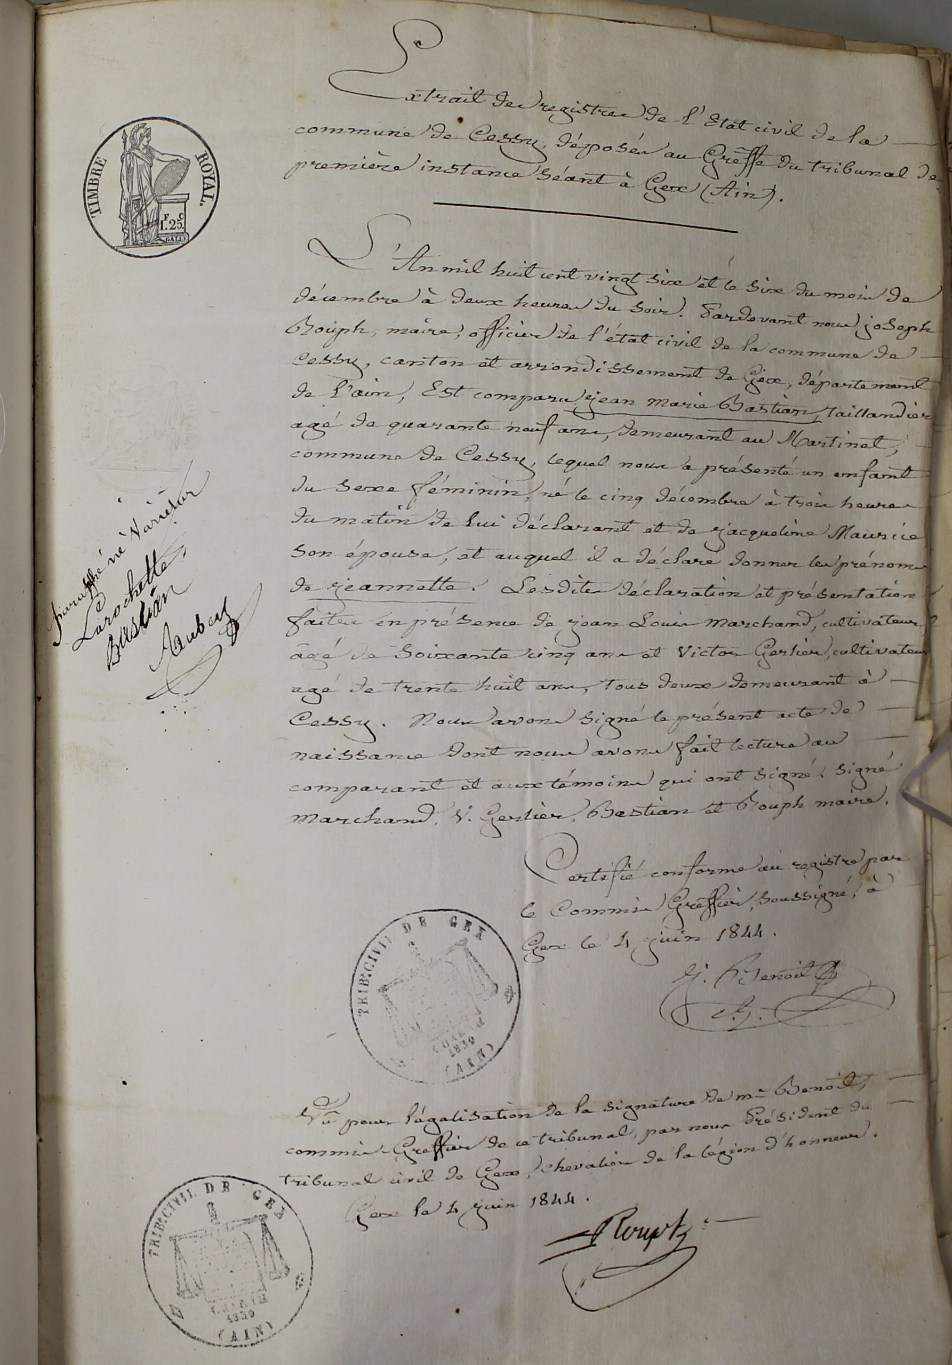 TIMBRE ROYAL.
1F. 25C
Extrait des registres de l'Etat civil de la
commune de Cessy, déposés au Greffe du tribunal de
première instance séant à Gex (Ain).
L'An mil huit cent vingt six et le six du mois de
décembre à deux heures du soir. Pardevant nous joseph
Bouph, maire, officier de l'état civil de la commune de
Cessy, canton et arrondissement de Gex, département
de l'ain, Est comparu jean marie Bastian, taillandier
agé de quarante neuf ans, demeurant au Martinet,
commune de Cessy, lequel nous a présenté un enfant
du sexe féminin, né le cinq décembre à trois heures
du matin de lui déclarant et de jacqueline Maurice
son épouse, et auquel il a déclaré donner les prénoms
de jeannette. Les dites déclaration et présentation
faites en présence de jean Louis Marchand, cultivateur,
âgé de soixante cinq ans et Victor Gerlier, cultivateur
agé de trente huit ans, tous deux demeurant à
Cessy. Nous avons signé le présent acte de
naissance dont nous avons fait lecture au
comparant et aux témoins qui ont signé. Signé
Marchand, V. Gerlier, Bastian et Bouph maire.
paraphé nè Varietur
Larochette
Bastian
Aubert
Certifié conforme au registre par
le Commis Greffier, soussigné, à
Gex le 4 juin 1844.
J. Benoit
TRIB: CIVIL DE GEX
1830
(AIN)
Vu pour légalisation de la signature de mr Benoît,
commis-Greffier de ce tribunal, par nous Président du
tribunal civil de Gex, chevalier de la légion d'honneur.
Gex le 4 juin 1844.
TRIB: CIVIL DE GEX
1830
(AIN)